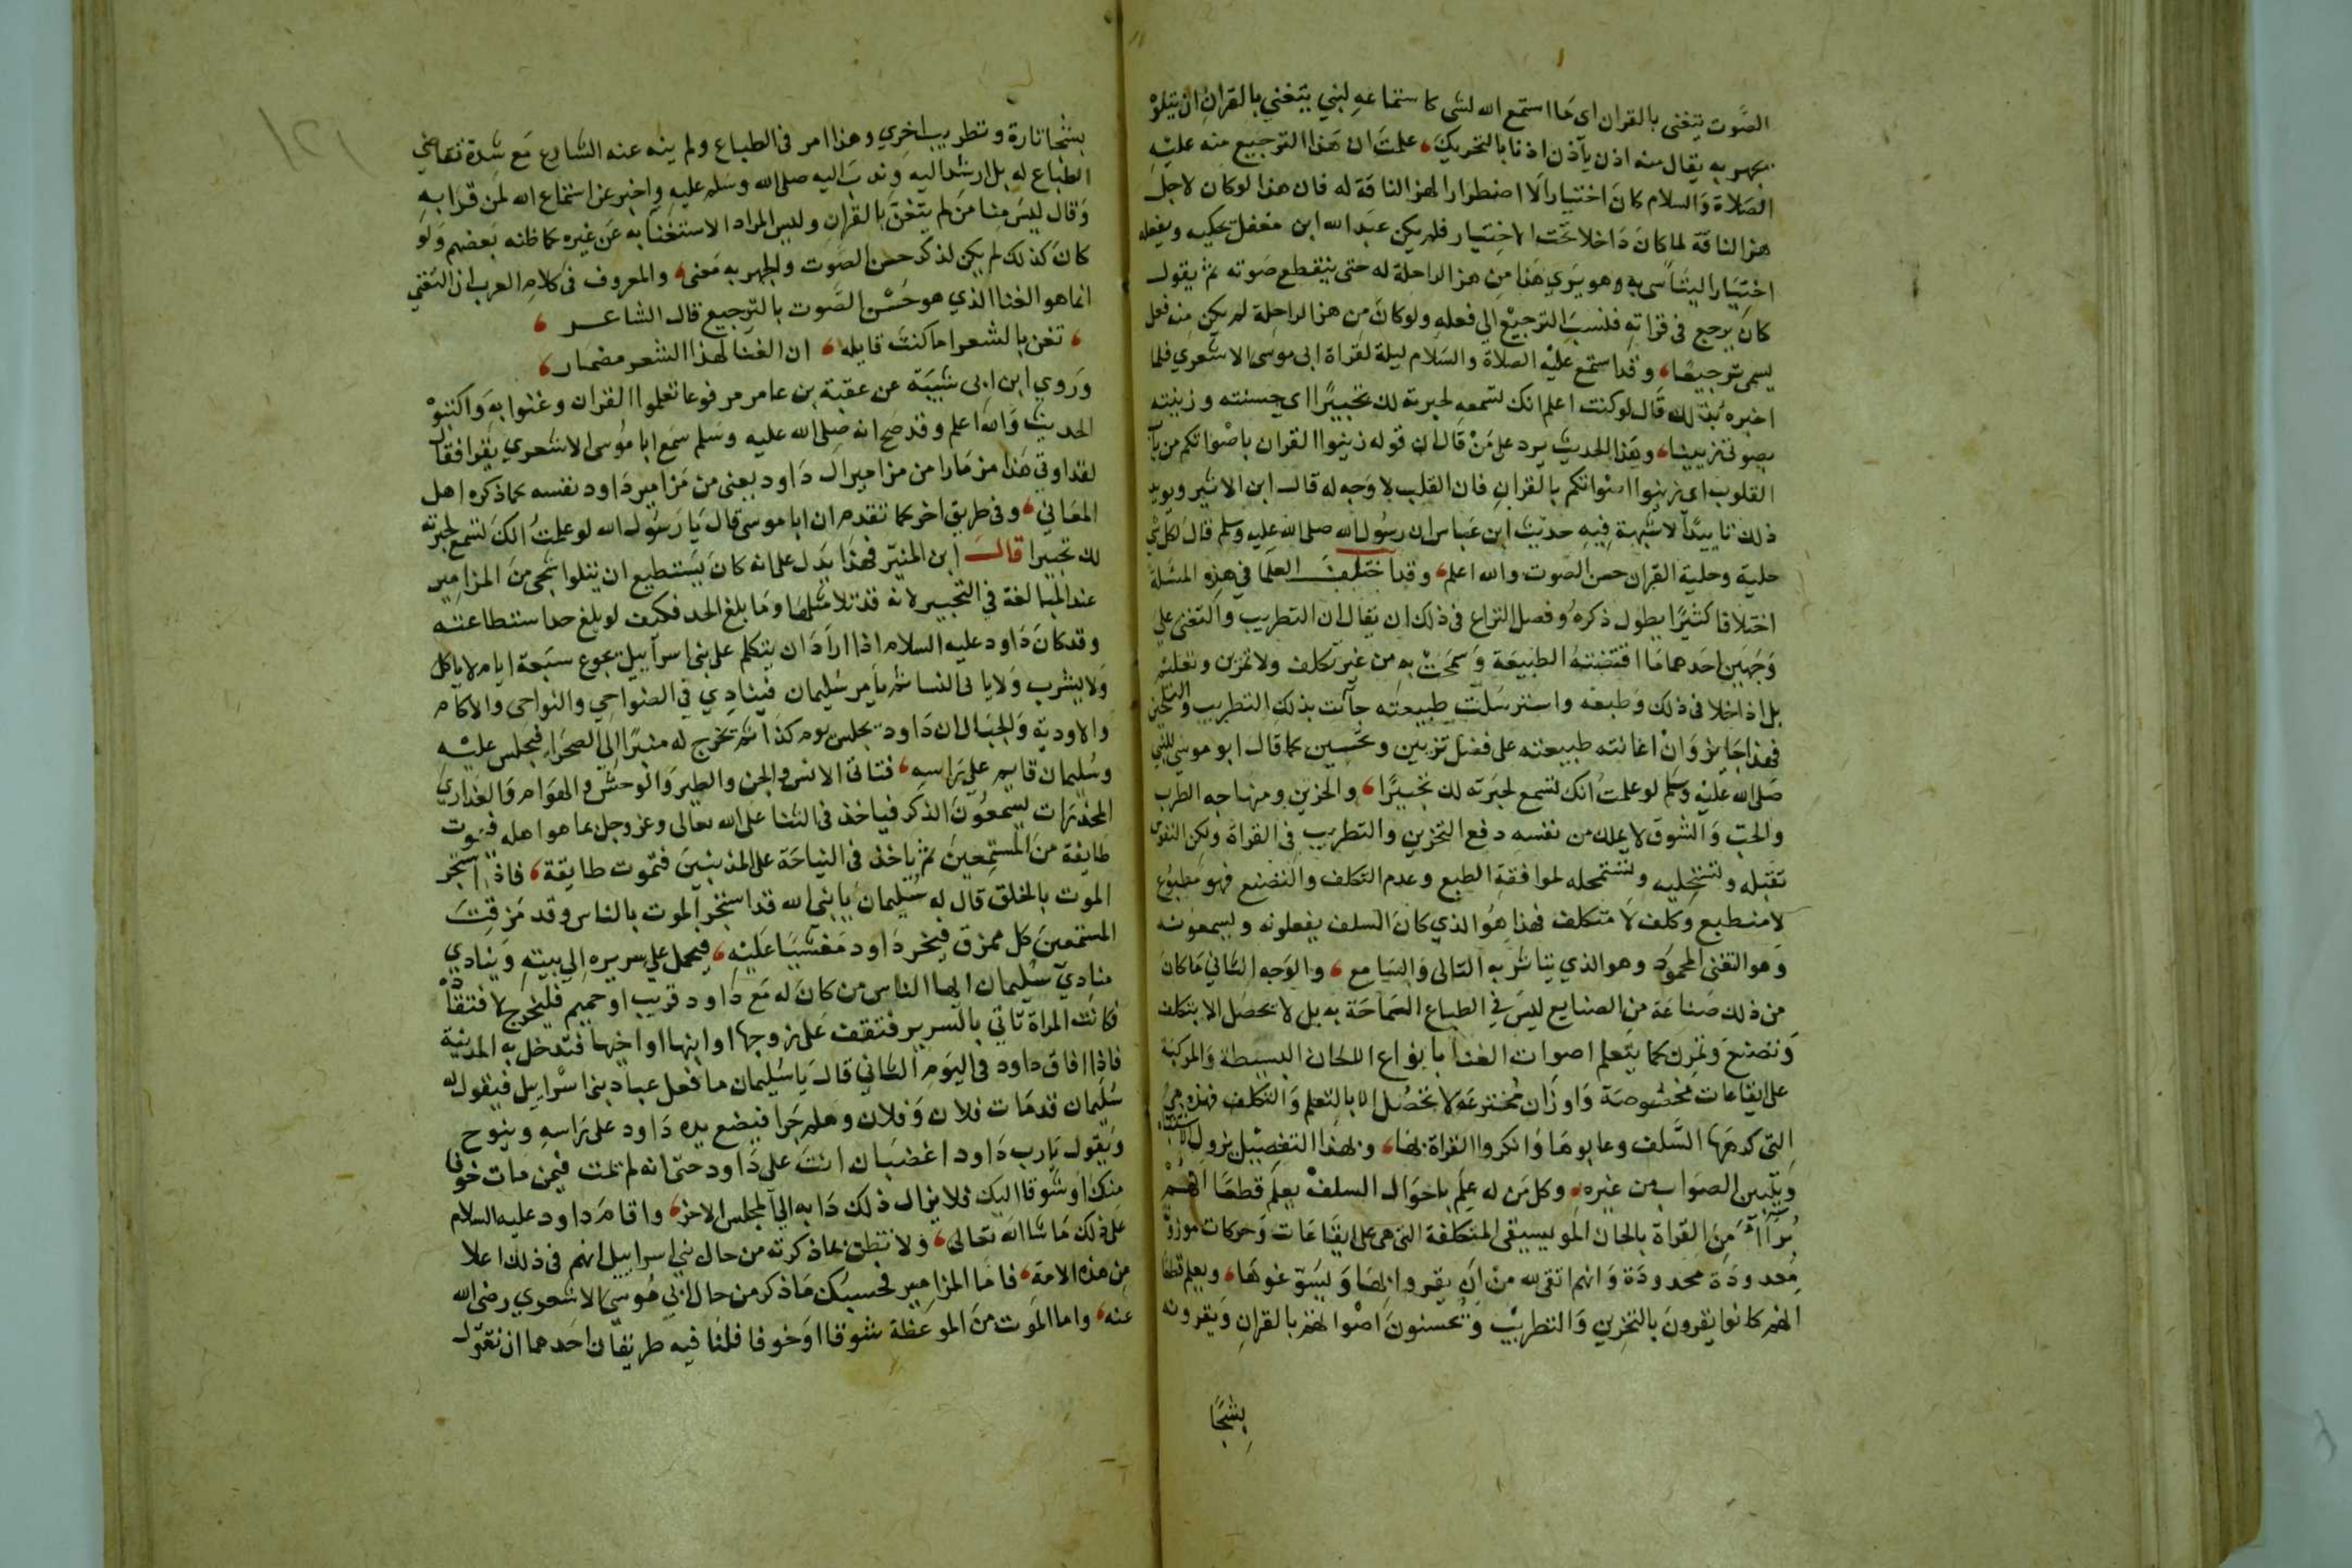 الصَّوت يتغنى بالقران اى مَا استمع الله لشى كاستماعهِ لنبي يتغني بالقرانِ ان يتلوْ
يجهر به يقال منه اذن ياذن اذنا بالتحريك، علمتَ ان هَذا الترجيع منه عليْهِ
الصَلاة وَالسلام كانَ اختيارا لَا اضطرارا لهز الناقة له فان هذا لوكان لاجل
هز الناقة لما كانَ دَاخلا تحَت الاختيار فلم يكن عبَد الله ابن مغفل يحكيه ويفعله
اختيَارا ليتاَسى بهِ وهو يرَي هَذا مِن هز الراحلة له حتى ينقطع صَوته ثمّ يقول
كانَ يرجع فى قراته فنسبَ الترجيْع الي فعلهِ ولوكانَ مِن هز الراحِلة لم يكن منه فعل
يسمى ترجيعًا، وقد استمع عليْه الصلاة والسَلام ليلة لقراة ابى موسى الاشعرَي فلما
اخبرهُ بذلك قال لوكنت اعلم انك تسمعه لحبرته لك تحبيرًا اى حسنته وزينته
بصوتى تزيينا، وهَذا الحديث يرد على مَنْ قَال ان قوله زينوا القران باصْواتكم من باَبْ
القلوب اى زينوا اصْواتكم بالقرانِ فان القلب لا وَجه له قال ابن الاثير ويويد
ذلك تاييدًا لا شبهة فِيهِ حديث ابن عباس ان رسُول الله صلى الله عليه وسلم قال لكل شى
حلية وحلية القران حسن الصوت والله اعلم، وقد اختلف العلما في هذِهِ المسَلة
اختلافا كثيرًا يطول ذكرهُ وفصل النزاع فى ذلك ان يقال ان التطريب والتغنى علي
وَجهين احَدهما مَا اقتضتهُ الطبيعَة وَسمحَتْ به من غير تكلف ولا تمرين وتعليْم
بل اذا خلا فى ذلك وَطبعَه واسترسَلت طبيعتَه جاَت بذلك التطريب والتلحين
فهذا جَايز وَانْ اعانته طبيعته على فضل تزيين وتحسين كما قال ابو موسي للنبي
صَلى الله عليْه وسَلم لو علمتُ انك تسمع لحبَرته لك تحبيرًا، والحزين ومنهاجه الطرب
والحبَ وَالشوقَ لا يملك من نفسِهِ دفع التحزين والتطريب فى القراة ولكن النفوس
تقبله وتستحليه وتستملحه لموافقةِ الطبع وعدم التكلف والتصَنع فهو مَطبُوع
لا متطبع وكلف لا متكلف فهذا هوُ الذي كانَ السلف يفعلونه ويسمعونه
وَهو التغنى المحموُد وهو الذي يتاثر به التالى وَالسَامع، والوَجه الثانى مَاكان
من ذلك صَناعَة من الصنايع ليسَ فِي الطباع السَماحَة به بل لا تحصَل الا بتكلف
وَتصَنعَ وتمرن كما يتعلم اصوات الغنا بانواع الالحان البسيطة وَالمركبَة
على ايقاعات مخصُوصَة وَاوزَان مُخترعَه لا تحصُل الا بالتعلم وَالتكلف فهذه هيُ
التى كرهَها السَّلف وعابوهَا وَانكروا القراة بها، وبهذا التفصيْل يزول الاشتباه
وَيتبين الصَوابِ من غيره، وكل مَن له علم باحوَال السلفْ يعلم قطعَا انهُمْ
بُرَآاَء مِنَ القراة بالحان الموسيقى المتكلفة التى هى على ايقَاعَات وَحركات موزونة
مَعدودَة محدودَة وَانهم اتقى لله من ان يقروا بهَا وَيسَوّغوهَا، ويعلم قطعا
انهم كانوا يقرونَ بالتحزين وَالتطريبْ وَيحَسنونَ اصْواتهم بالقرانِ وَيقرونه
بِشجَا
بشجا تارة وتطريب اخري وهذا امر فى الطباع ولم ينه عنه الشارع مَع شدة تقاضي
الطباع له بل ارشد اليه وندبَ اليه صلى الله وسَلم عليه واخبر عن استماع الله لمن قرَا به
وَقال ليسَ منا من لم يتغنّ بالقرانِ وليس المراد الاستغنا به عَن غيره كما ظنه بَعضهم وَلو
كانَ كذلك لم يكن لذكر حسن الصَوت والجهر به مَعنى، والمعروف فى كلام العرب ان التغني
انما هو الغنا الذي هو حُسْن الصَوت بالترجيع قال الشاعر،
، تغن بالشعر اما كنت قايله، ان الغنا لهذا الشعر مضمار،
وَروي ابن ابى شيبَة عن عقبَة بن عامر مرفوعا تعلموا القران وغنوا بهِ وَاكتبوْ
الحديث وَالله اعلم وقد صَح انه صَلى الله عليه وسَلم سمَع ابا موُسى الاشعري يقرا فقال
لقد اوتي هَذا مزمَارا من مزامير ال داود يعنى من مَزامير دَاود نفسه كما ذكره اهل
المعَاني، وفى طريق اخر كما تقدم ان ابا موسى قال يَا رسُول الله لو علمتُ انك تسمع لحبرته
لك تحبيرا قال ابن المنيّر فهذَا يدَل على انه كانَ يَستطيع ان يتلوا اشجى مِنَ المزامِير
عند المبَالغة في التحبير لانه قد تلا مثلهَا ومَا بلغ الحد فكيف لو بلغ حد استطاعته
وقد كانَ دَاود عليه السلام اذا ارادَ ان يتكلم على بنى اسراَييل يجوع سَبعة ايام لا ياكل
وَلا يشرب وَلا ياتى النساَ ثم يأمر سُليمان فينادِي في الضواحِي والنواحى والاكام
والاوديةِ وَالجبَال ان دَاود يجلس يوم كذا ثم تخرج له منبرًا الى الصحَراء فيجلس عليْهِ
وسُليمان قايم على رَاسِهِ، فتاتى الانس والجن والطير وَالوحشُ والهوَام وَالعذاري
المخدَرات يسمعُونَ الذكر فياخذ فى الثنا على الله تعالى وعز وجل بما هو اهله فيَموت
طايفة منَ المستمِعينَ ثمّ ياخذ فى النياحَة على المذنبينَ فتموت طايفة، فاذا استحر
الموت بالخلق قال له سُليمان يا نبى الله قد استحر الموت بالناس وقد مَزقتَ
المستمعينَ كل ممزق فيخر دَاود مَغشيَا عَليْهِ، فيحمل علي سريرهِ الي بيتهِ وَينادي
مناديَ سُليمان ايها الناس من كانَ له مَع دَاود قريب او حميم فليخرج لافتقاده
فكانت المراة تَاتي بالسرير فتقف عَلى زوجها او ابنها او اخيها فتدخل به المدينة
فاذا افاق داود فى اليَومِ الثاني قالَ يَا سُليمان ما فعل عباد بنى اسْراييل فيقول له
سُليمان قد مَات فلان وَفلان وهلم جَرا فيضع يده دَاود على رَاسهِ وينوح
وَيقول يَا رب دَاود اغضبَان انتَ على دَاود حتى انه لم تمت فيمن مات خوفا
منك او شوقا اليك فلا يزال ذلك دَابه الي المجلس الاخر، واقامَ دَاود عليه السلام
على ذلك مَا شاَ الله تعالى، وَلا تظن بما ذكرته من حال بني اسراييل انهم فى ذلك اعلا
مِن هذه الامةِ، فاما المزامِير فحسبُك مَا ذكر من حال ابي موُسى الاشعري رضى الله
عنه، واما الموَت منَ الموعظة شوقا او خوفا فلنا فيه طريقان احَدهما ان نقول